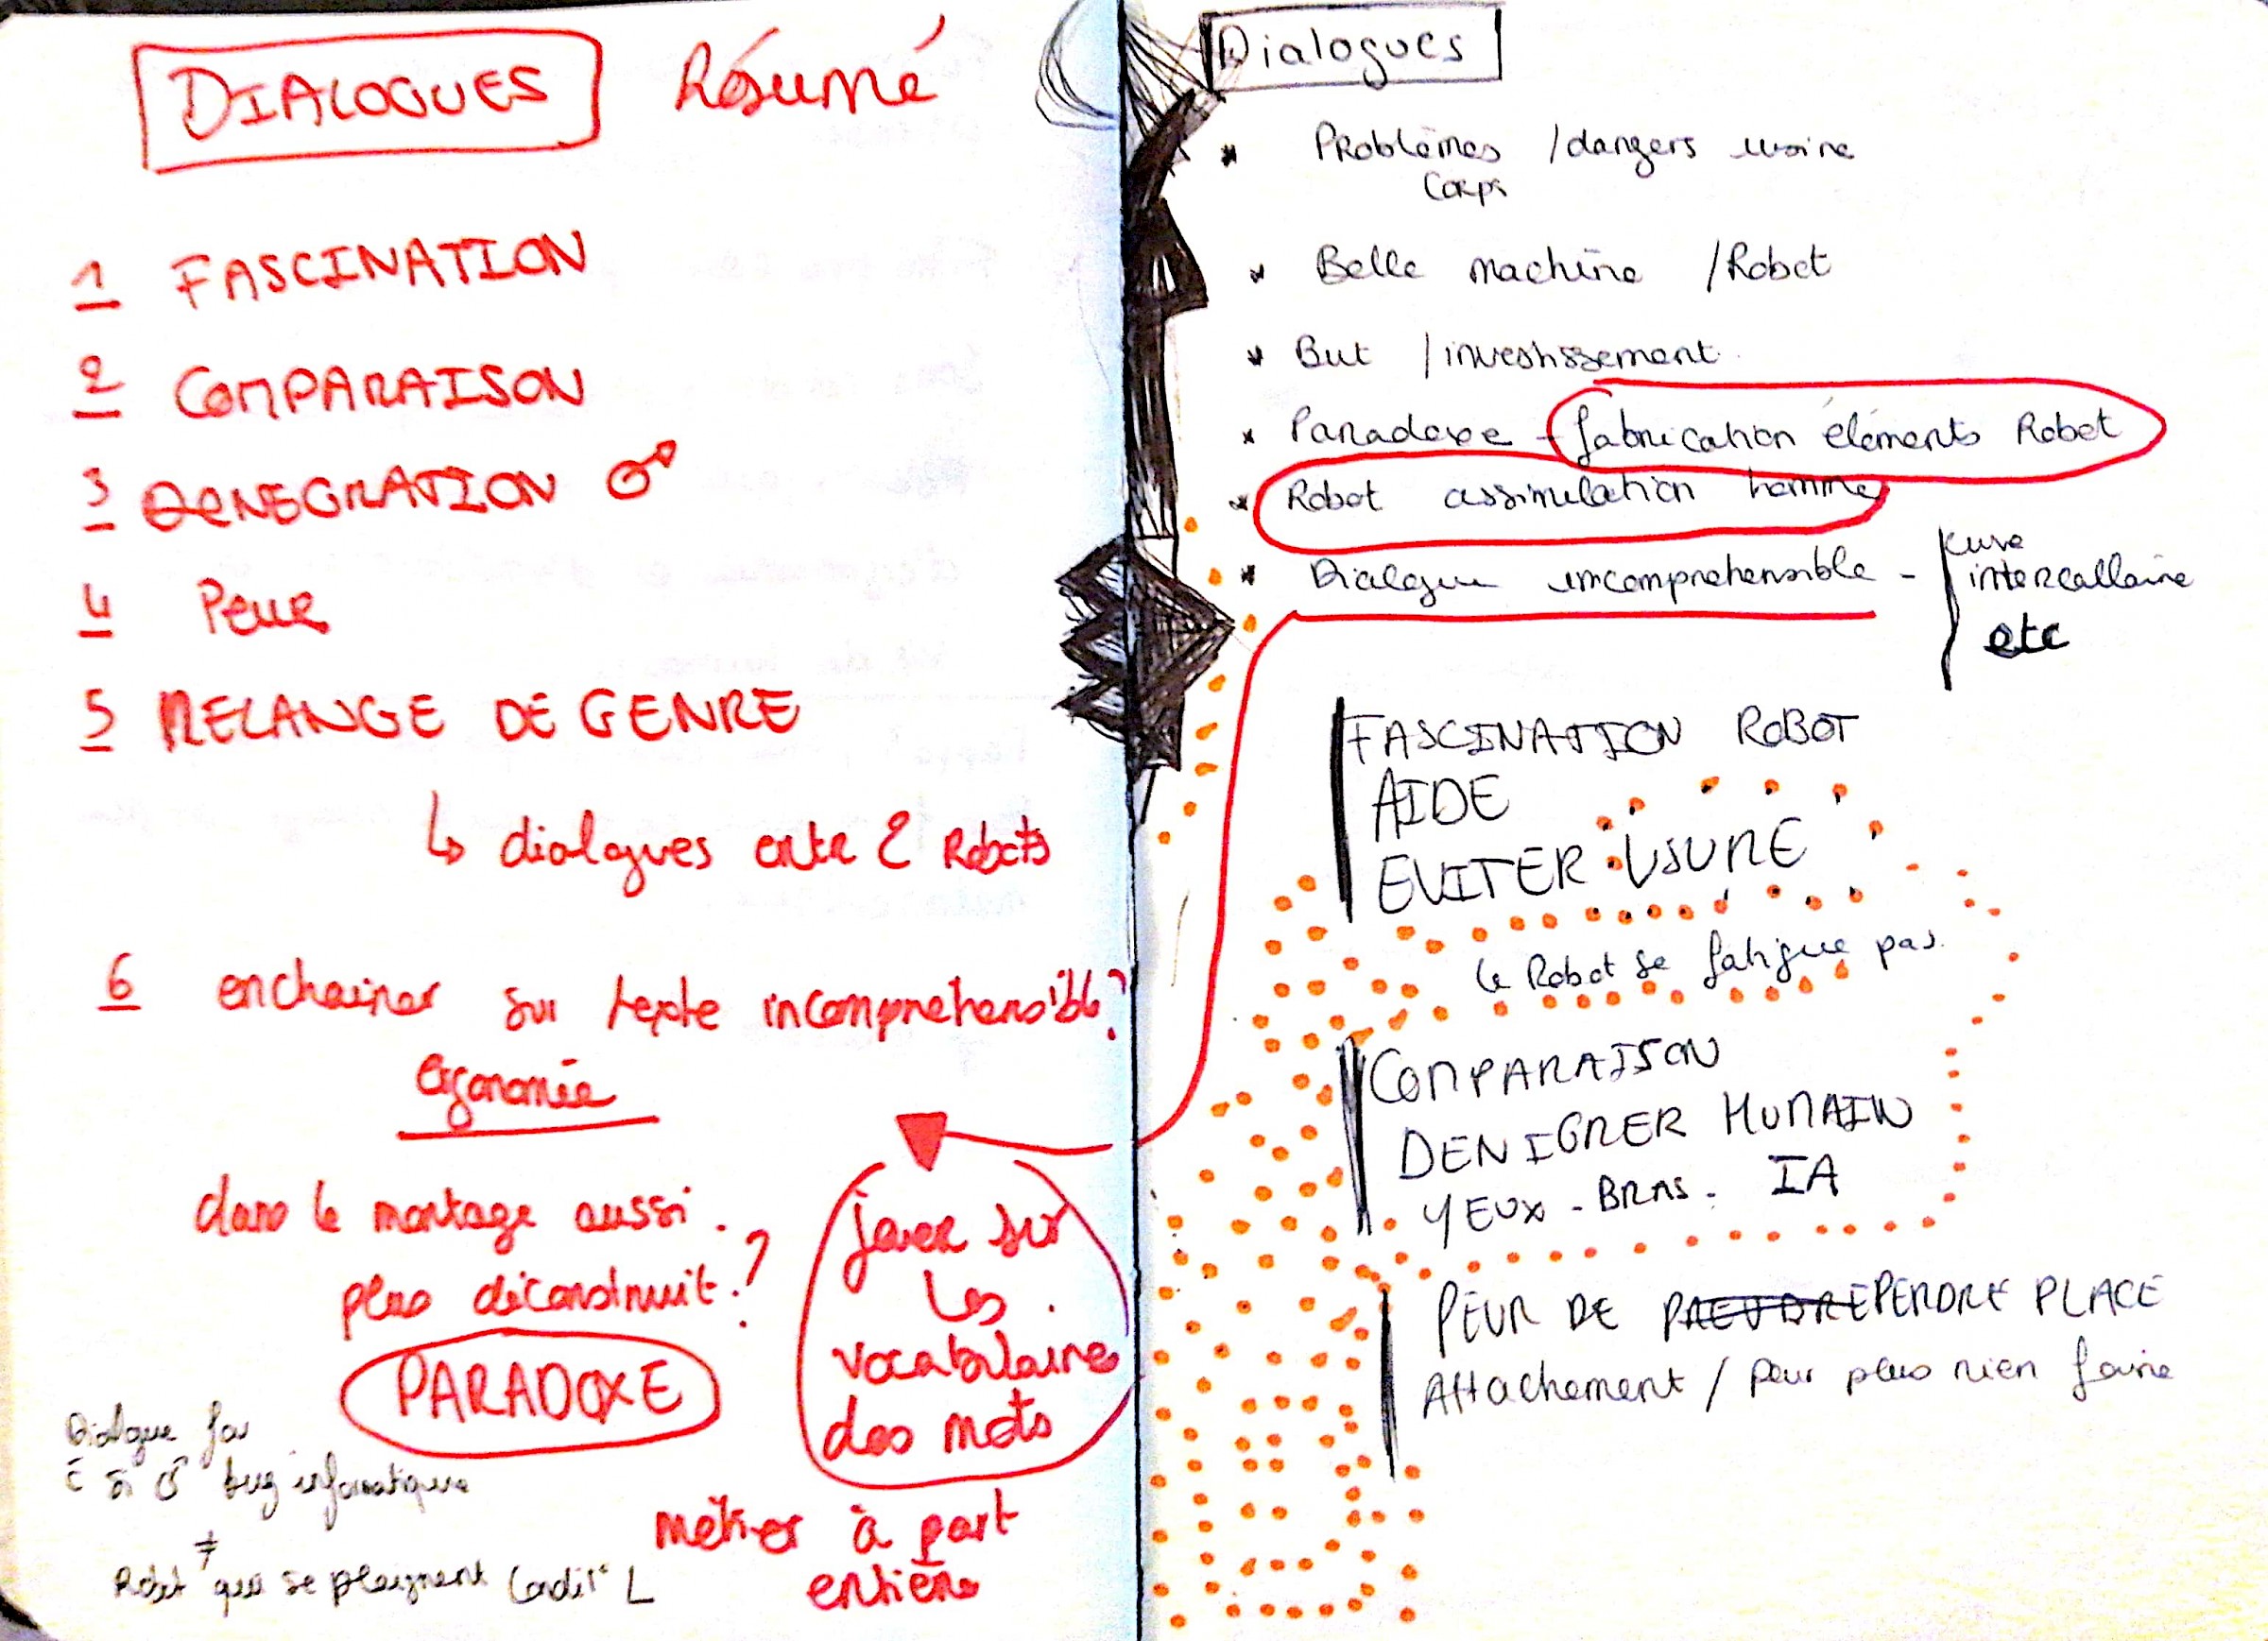 DIALOGUES Résumé
1 FASCINATION
2 COMPARAISON
3 DENEGRATION ♂
4 Peur
5 MELANGE DE GENRE
↳ dialogues entre 2 Robots
6 enchainer sur texte incomprehensible?
Ergonomie
dans le montage aussi.
plus déconstruit.?
PARADOXE
jouer sur
les
vocabulaires
des mots
métier à part
entière
Dialogue
bug informatique
≠
Robot qui se plaignent Condit° L
Dialogues
* Problèmes / dangers usine
Corps
* Belle machine / Robot
* But / investissement
* Paradoxe - fabrication éléments Robot
* Robot assimilation homme
* Dialogue imcomprehensible -
cuve
intercallaire
etc
FASCINATION ROBOT
AIDE
EVITER USURE
le Robot se fatigue pas.
COMPARAISON
DENIGRER HUMAIN
YEUX - BRAS. IA
PEUR DE PRENDRE PERDRE PLACE
Attachement / Peur plus rien faire